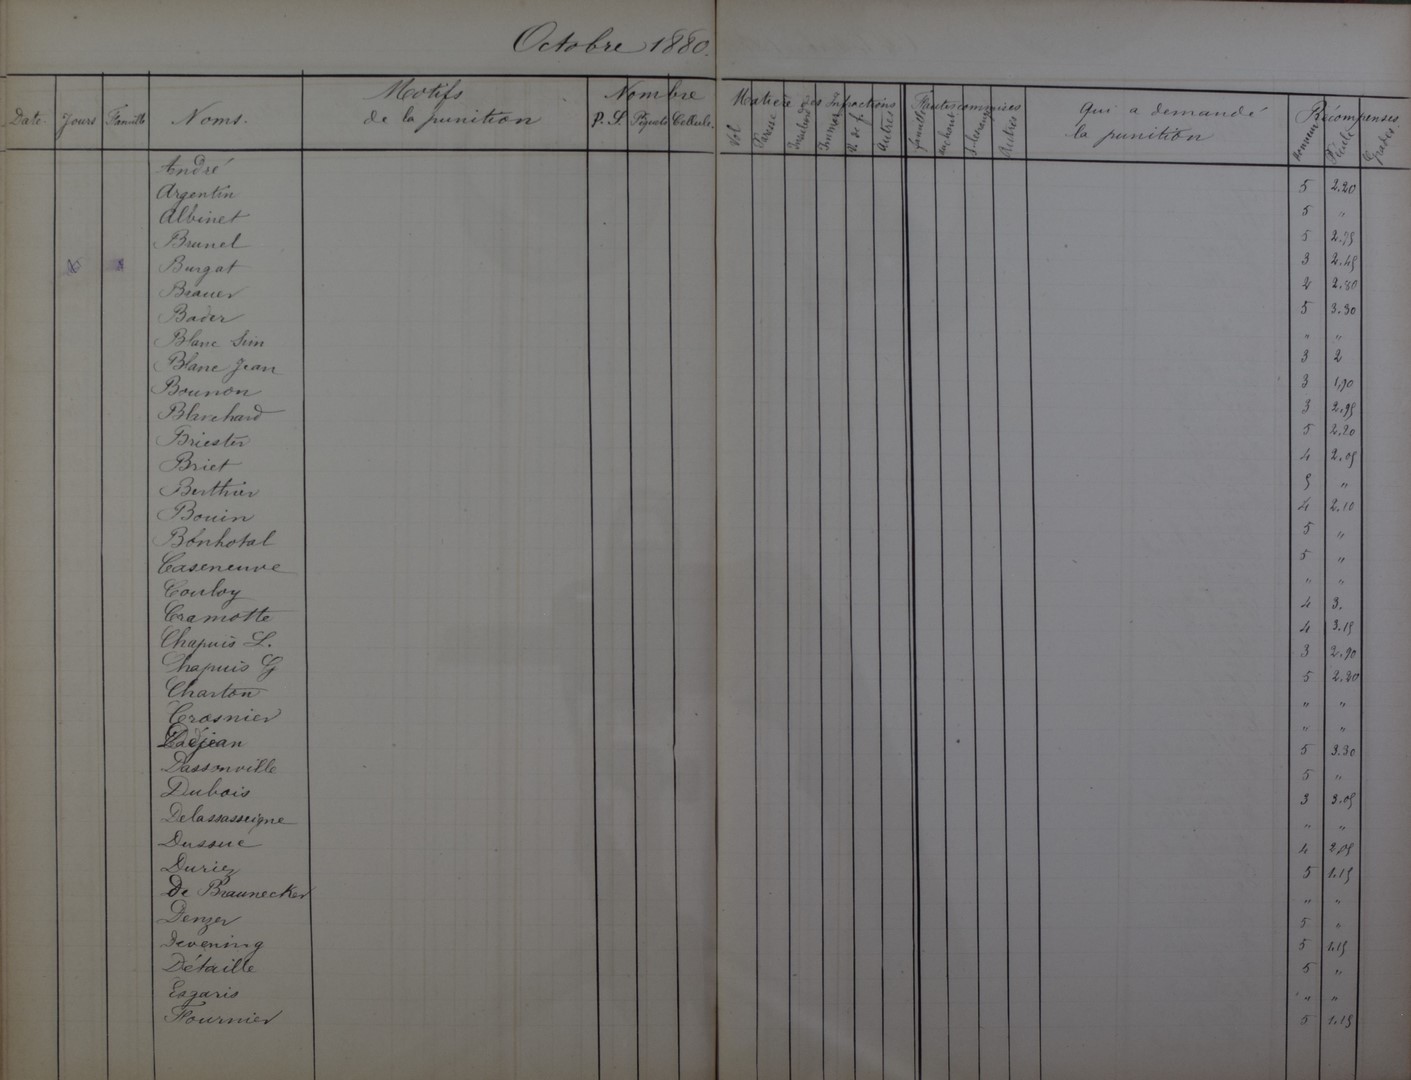 Octobre 1880.
Date. Jours Famille Noms. Motifs de la punition Nombre P. S. Piquets Cellule. Matière des Infractions Vol Paresse Immor. R. de f. Autres Fautes commises famille Autres Qui a demandé la punition Récompenses Honneur Grades.
André
Argentin 5 2.20
Albinet 5 "
Brunel 5
Burgat 3 2.45
Brauer
Bader 5 3.30
Blanc Sim " "
Blanc Jean 3 2
Bounon 3
Blanchard 3
Briester 5 2.20
Briet 4 2.05
Berthier "
Bouin 4 2.10
Bonhotal 5 "
Caseneuve 5 "
Couloy " "
Cramotte 4 3.
Chapuis L. 4 3.15
Chapuis G 3 2.90
Charton 5
Crosnier " "
Dejean " "
Dassonville 5 3.30
Dubois 5 "
Delassasseigne 3 3.05
Dussue " "
Duriez 4 2.05
De Braunecker 5 1.15
Denzer " "
Devening 5 "
Détaille 5 1.15
Esgaris 5 "
Fournier " "
5 1.15